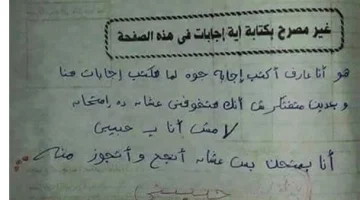 غير مصرح بكتابة أية إجابات فى هذه الصفحة
هو أنا عارف أكتب إجابة جوه لما هكتب إجابات هنا
وبعدين متفتكرش أنك هتخوفنى عشانه ده إمتحانه
لا مش أنا يا حبيبى
أنا بمتحن بس عشانه أنجح و أتجوز منه
حبيبتى